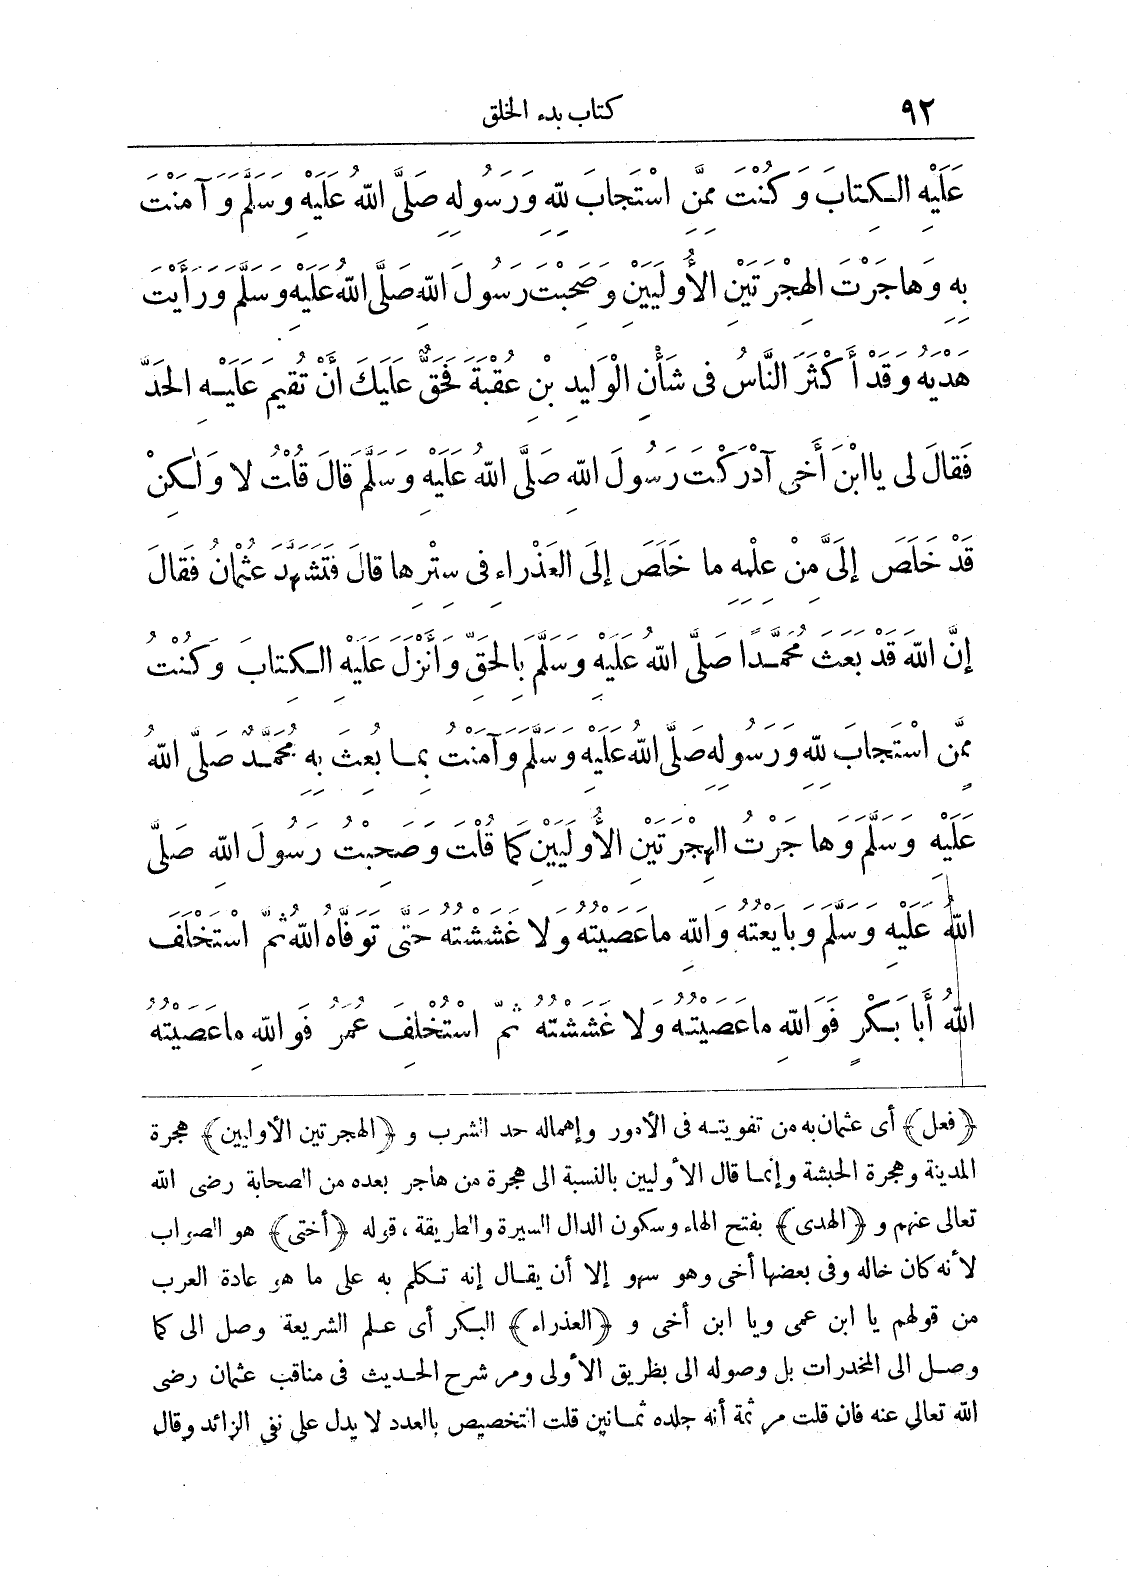 ٩٢
كتاب بدء الخلق
عَلَيْهِ الكِتابَ وَكُنْتَ مِمَّنِ اسْتَجابَ لِلّهِ وَرَسُولِهِ صَلَّى اللّهُ عَلَيْهِ وَسَلَّمَ وَآمَنْتَ
بِهِ وَهاجَرْتَ الهِجْرَتَيْنِ الأُولَيَيْنِ وَصَحِبْتَ رَسُولَ اللّهِ صَلَّى اللّهُ عَلَيْهِ وَسَلَّمَ وَرَأَيْتَ
هَدْيَهُ وَقَدْ أَكْثَرَ النَّاسُ فى شَأْنِ الْوَلِيدِ بْنِ عُقْبَةَ فَحَقٌّ عَلَيْكَ أَنْ تُقِيمَ عَلَيْهِ الحَدَّ
فَقالَ لى يا ابْنَ أَخى آدْرَكْتَ رَسُولَ اللّهِ صَلَّى اللّهُ عَلَيْهِ وَسَلَّمَ قَالَ قُلْتُ لا وَلٰكِنْ
قَدْ خَلَصَ إِلَىَّ مِنْ عِلْمِهِ ما خَلَصَ إِلَى العَذْراءِ فى سِتْرِها قالَ فَتَشَهَّدَ عُثْمانُ فَقالَ
إِنَّ اللّهَ قَدْ بَعَثَ مُحَمَّدًا صَلَّى اللّهُ عَلَيْهِ وَسَلَّمَ بِالحَقِّ وَأَنْزَلَ عَلَيْهِ الكِتابَ وَكُنْتُ
مِمَّنِ اسْتَجابَ لِلّهِ وَرَسُولِهِ صَلَّى اللّهُ عَلَيْهِ وَسَلَّمَ وَآمَنْتُ بِما بُعِثَ بِهِ مُحَمَّدٌ صَلَّى اللّهُ
عَلَيْهِ وَسَلَّمَ وَهاجَرْتُ الهِجْرَتَيْنِ الأُولَيَيْنِ كَما قُلْتَ وَصَحِبْتُ رَسُولَ اللّهِ صَلَّى
اللّهُ عَلَيْهِ وَسَلَّمَ وَبايَعْتُهُ وَاللّهِ ماعَصَيْتُهُ وَلا غَشَشْتُهُ حَتَّى تَوَفَّاهُ اللّهُ ثُمَّ اسْتَخْلَفَ
اللّهُ أَبا بَكْرٍ فَوَ اللّهِ ماعَصَيْتُهُ وَلا غَشَشْتُهُ ثُمَّ اسْتُخْلِفَ عُمَرُ فَوَ اللّهِ ماعَصَيْتُهُ
﴿فعل﴾ أى عثمان به من تفويته فى الأمور وإهماله حد الشرب و ﴿الهجرتين الأوليين﴾ هجرة
المدينة وهجرة الحبشة وإنما قال الأوليين بالنسبة الى هجرة من هاجر بعده من الصحابة رضى الله
تعالى عنهم و ﴿الهدى﴾ بفتح الهاء وسكون الدال السيرة والطريقة، قوله ﴿أختى﴾ هو الصواب
لأنه كان خاله وفى بعضها أخى وهو سهو إلا أن يقال إنه تكلم به على ما هو عادة العرب
من قولهم يا ابن عمى ويا ابن أخى و ﴿العذراء﴾ البكر أى علم الشريعة وصل الى كما
وصل الى المخدرات بل وصوله الى بطريق الأولى ومر شرح الحديث فى مناقب عثمان رضى
الله تعالى عنه فان قلت مر ثمة أنه جلده ثمانين قلت التخصيص بالعدد لا يدل على نفى الزائد وقال